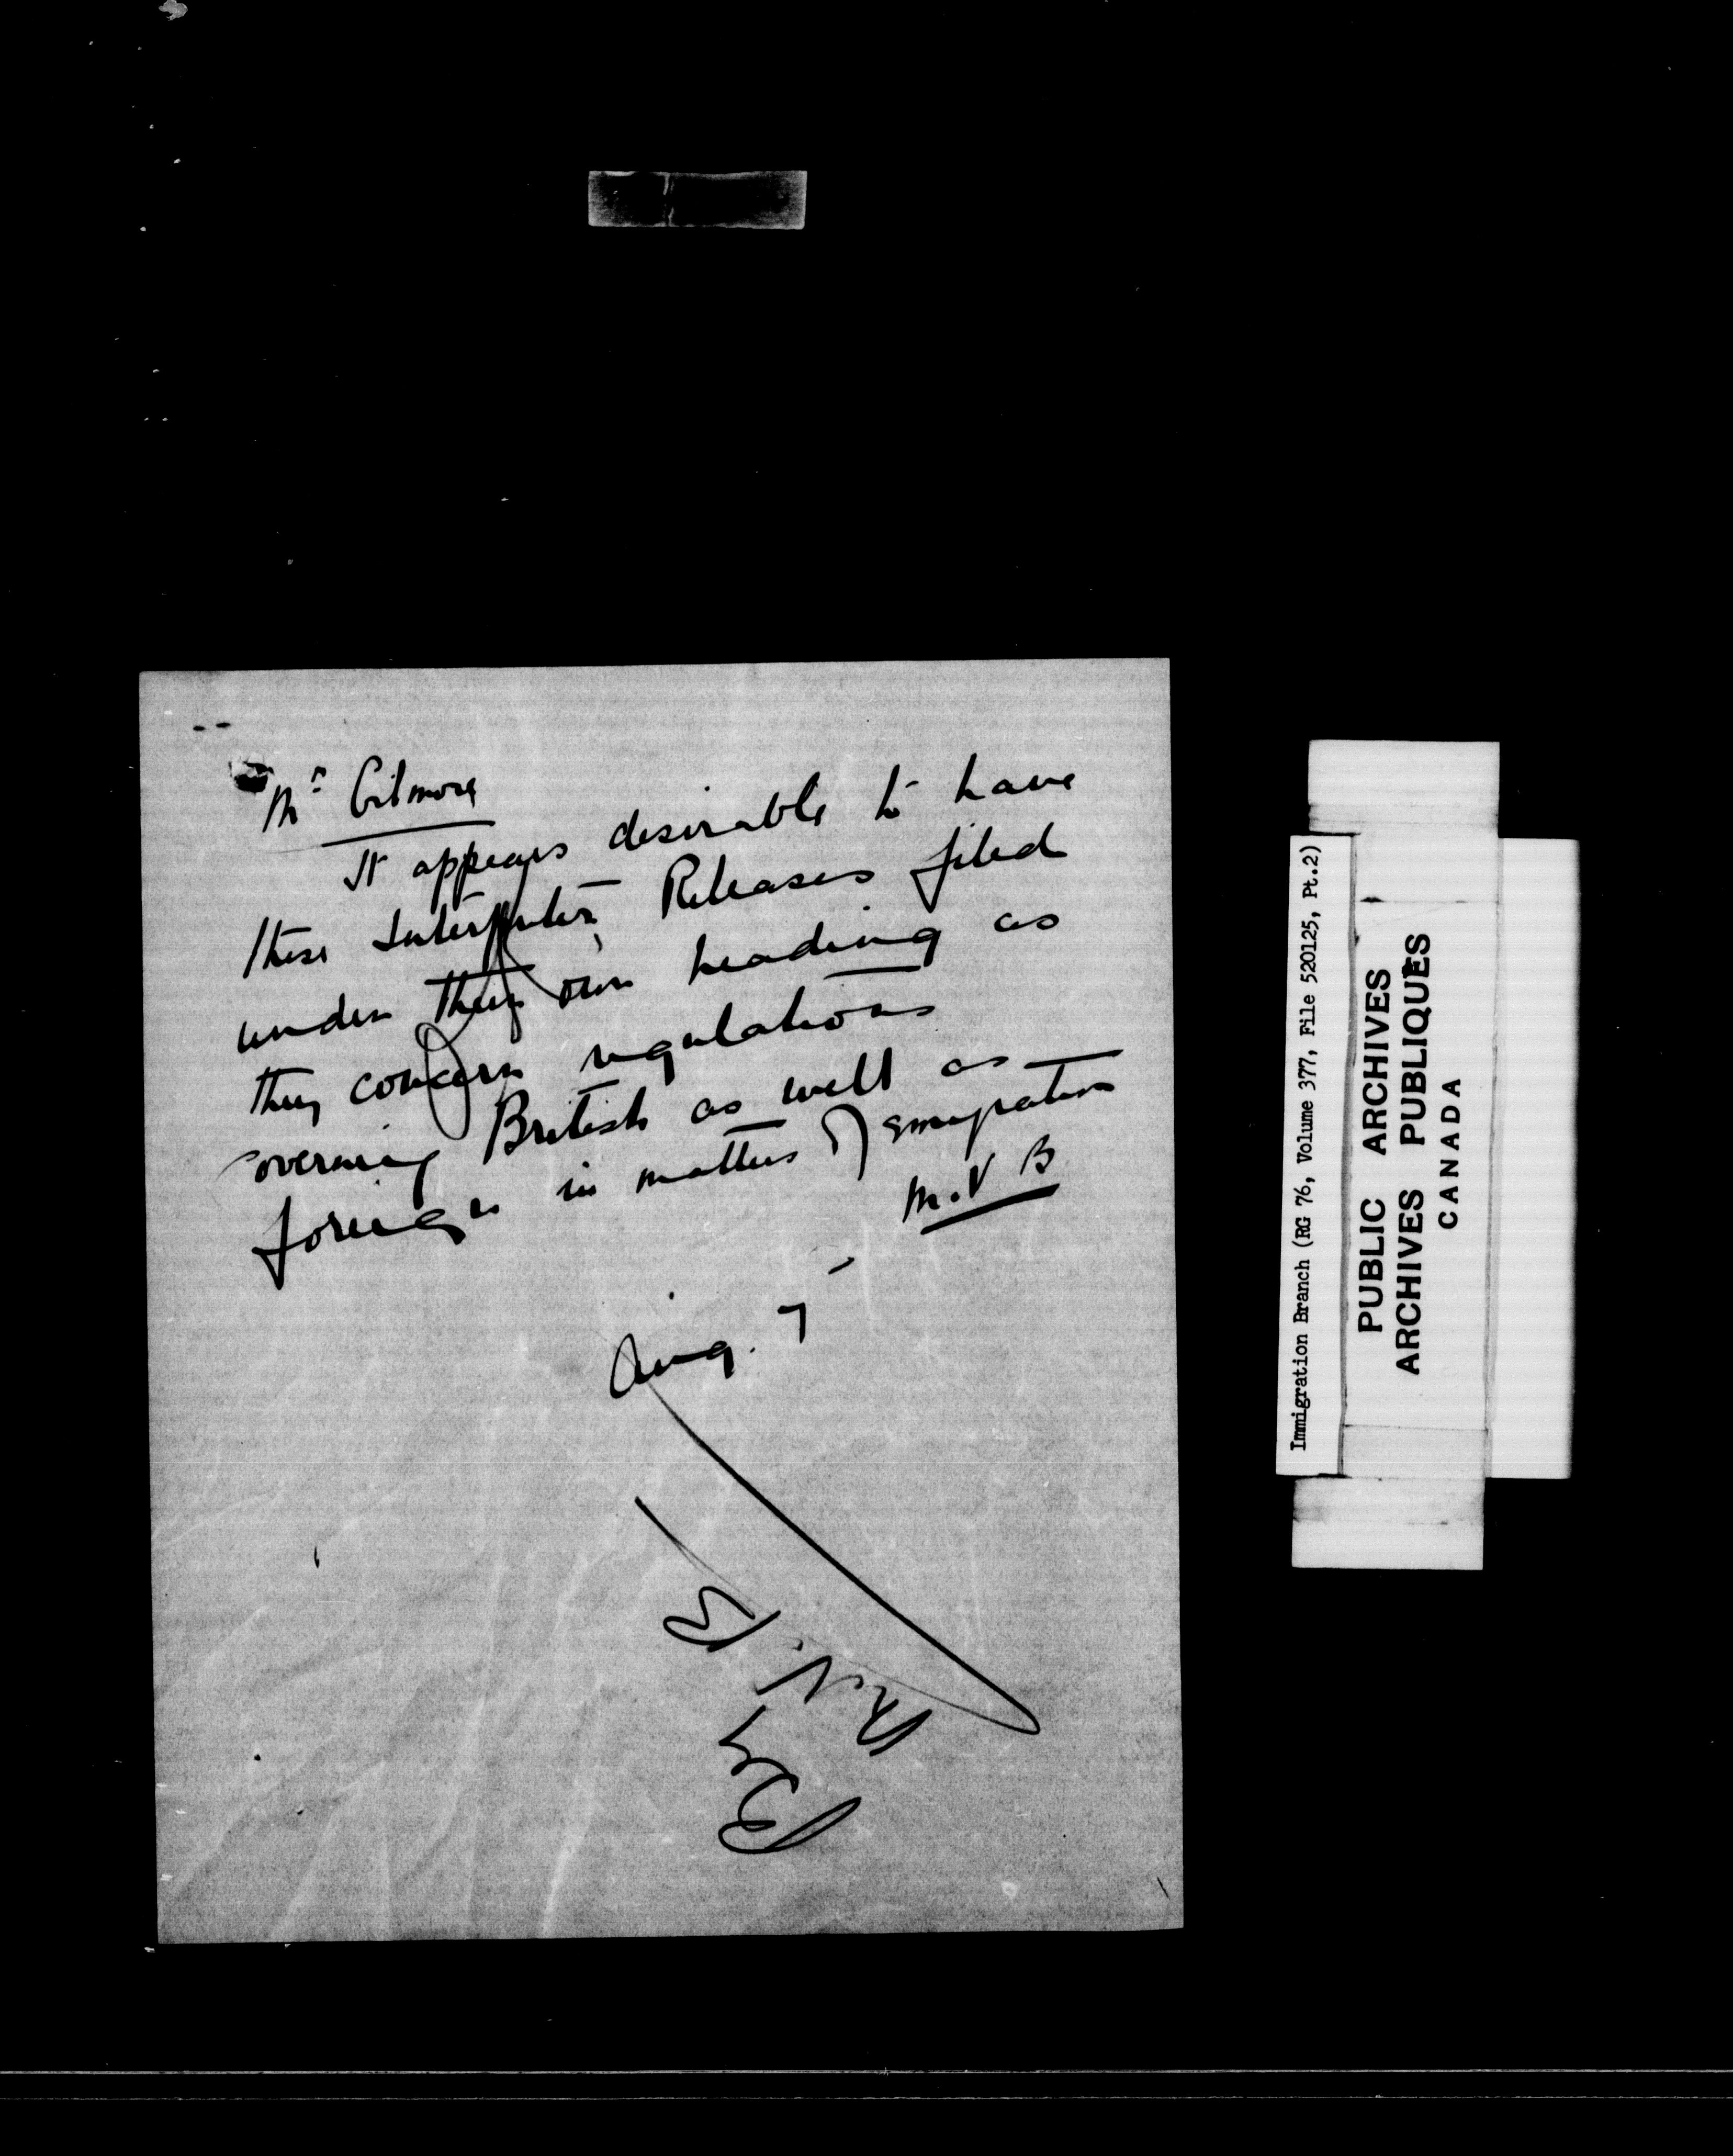 Mr Gilmore
It appears desirable to have
these Interpreter Releases filed
under their own heading as
they concern regulations
governing British as well as
foreign in matters of emigration
M.V B
Aug. 7
M.V.B
Immigration Branch (RG 76, Volume 377, File 520125, Pt.2)
PUBLIC ARCHIVES
ARCHIVES PUBLIQUES
CANADA